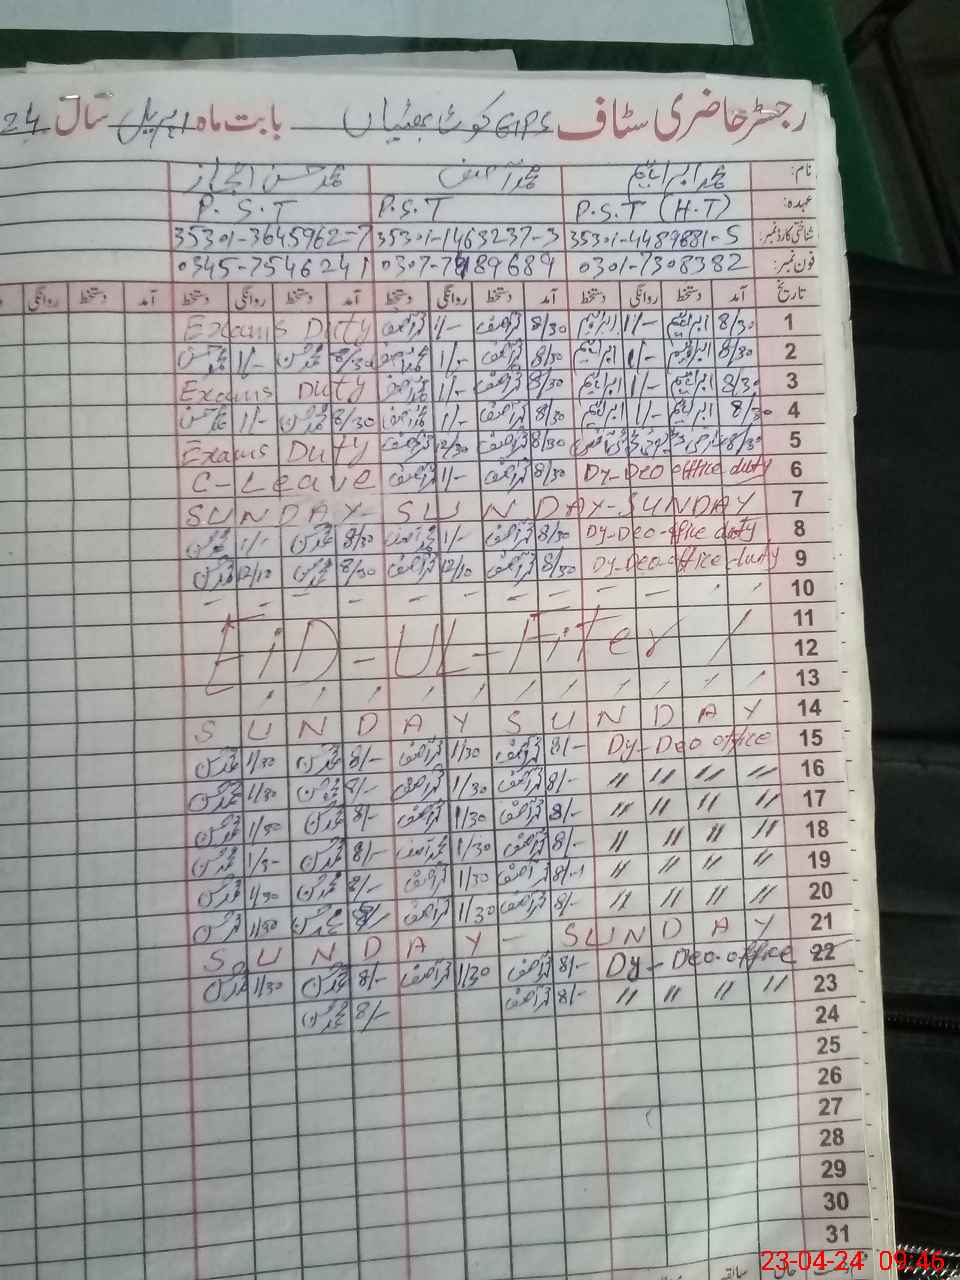 رجسٹر حاضری سٹاف GPS کوٹ بھٹیاں بابت ماہ اپریل سال 24
نام: محمد ابراہیم محمد آصف محمد حسن اعجاز
عہدہ: P.S.T (H.T) P.S.T P.S.T
شناختی کارڈ نمبر: 35301-4489681-5 35301-1463237-3 35301-3645962-7
فون نمبر: 0301-7308382 0307-7489689 0345-7546241
تاریخ آمد دستخط روانگی دستخط آمد دستخط روانگی دستخط آمد دستخط روانگی دستخط آمد دستخط روانگی
1 8/30 ابراہیم 1/- ابراہیم 8/30 محمد آصف 1/- محمد آصف Exams Duty
2 8/30 ابراہیم 1/- ابراہیم 8/30 محمد آصف 1/- محمد آصف 8/30 محمد حسن 1/- محمد حسن
3 8/30 ابراہیم 1/- ابراہیم 8/30 محمد آصف 1/- محمد آصف Exams Duty
4 8/30 ابراہیم 1/- ابراہیم 8/30 محمد آصف 1/- محمد آصف 8/30 محمد حسن 1/- محمد حسن
5 8/30 8/30 محمد آصف 12/30 محمد آصف Exams Duty
6 Dy-Deo office duty 8/30 محمد آصف 1/- محمد آصف C-Leave
7 SUNDAY-SUNDAY-SUNDAY
8 Dy-Deo-office duty 8/30 محمد آصف 1/- محمد آصف 8/30 محمد حسن 1/- محمد حسن
9 Dy-Deo-office-duty 8/30 محمد آصف 12/10 محمد آصف 8/30 محمد حسن 12/10 محمد حسن
10
11
12 EID-UL-Fiter /
13
14 SUNDAY SUNDAY
15 Dy-Deo office 8/- محمد آصف 1/30 محمد آصف 8/- محمد حسن 1/30 محمد حسن
16 〃 〃 〃 〃 8/- محمد آصف 1/30 محمد آصف 8/- محمد حسن 1/30 محمد حسن
17 〃 〃 〃 〃 8/- محمد آصف 1/30 محمد آصف 8/- محمد حسن 1/30 محمد حسن
18 〃 〃 〃 〃 8/- محمد آصف 1/30 محمد آصف 8/- محمد حسن 1/30 محمد حسن
19 〃 〃 〃 〃 8/- محمد آصف 1/30 محمد آصف 8/- محمد حسن 1/30 محمد حسن
20 〃 〃 〃 〃 8/- محمد آصف 1/30 محمد آصف 8/- محمد حسن 1/30 محمد حسن
21 SUNDAY-SUNDAY
22 Dy-Deo-office 8/- محمد آصف 1/30 محمد آصف 8/- محمد حسن 1/30 محمد حسن
23 〃 〃 〃 〃 8/- محمد آصف 8/- محمد حسن
24
25
26
27
28
29
30
31
حال سابقہ
23-04-24 09:46